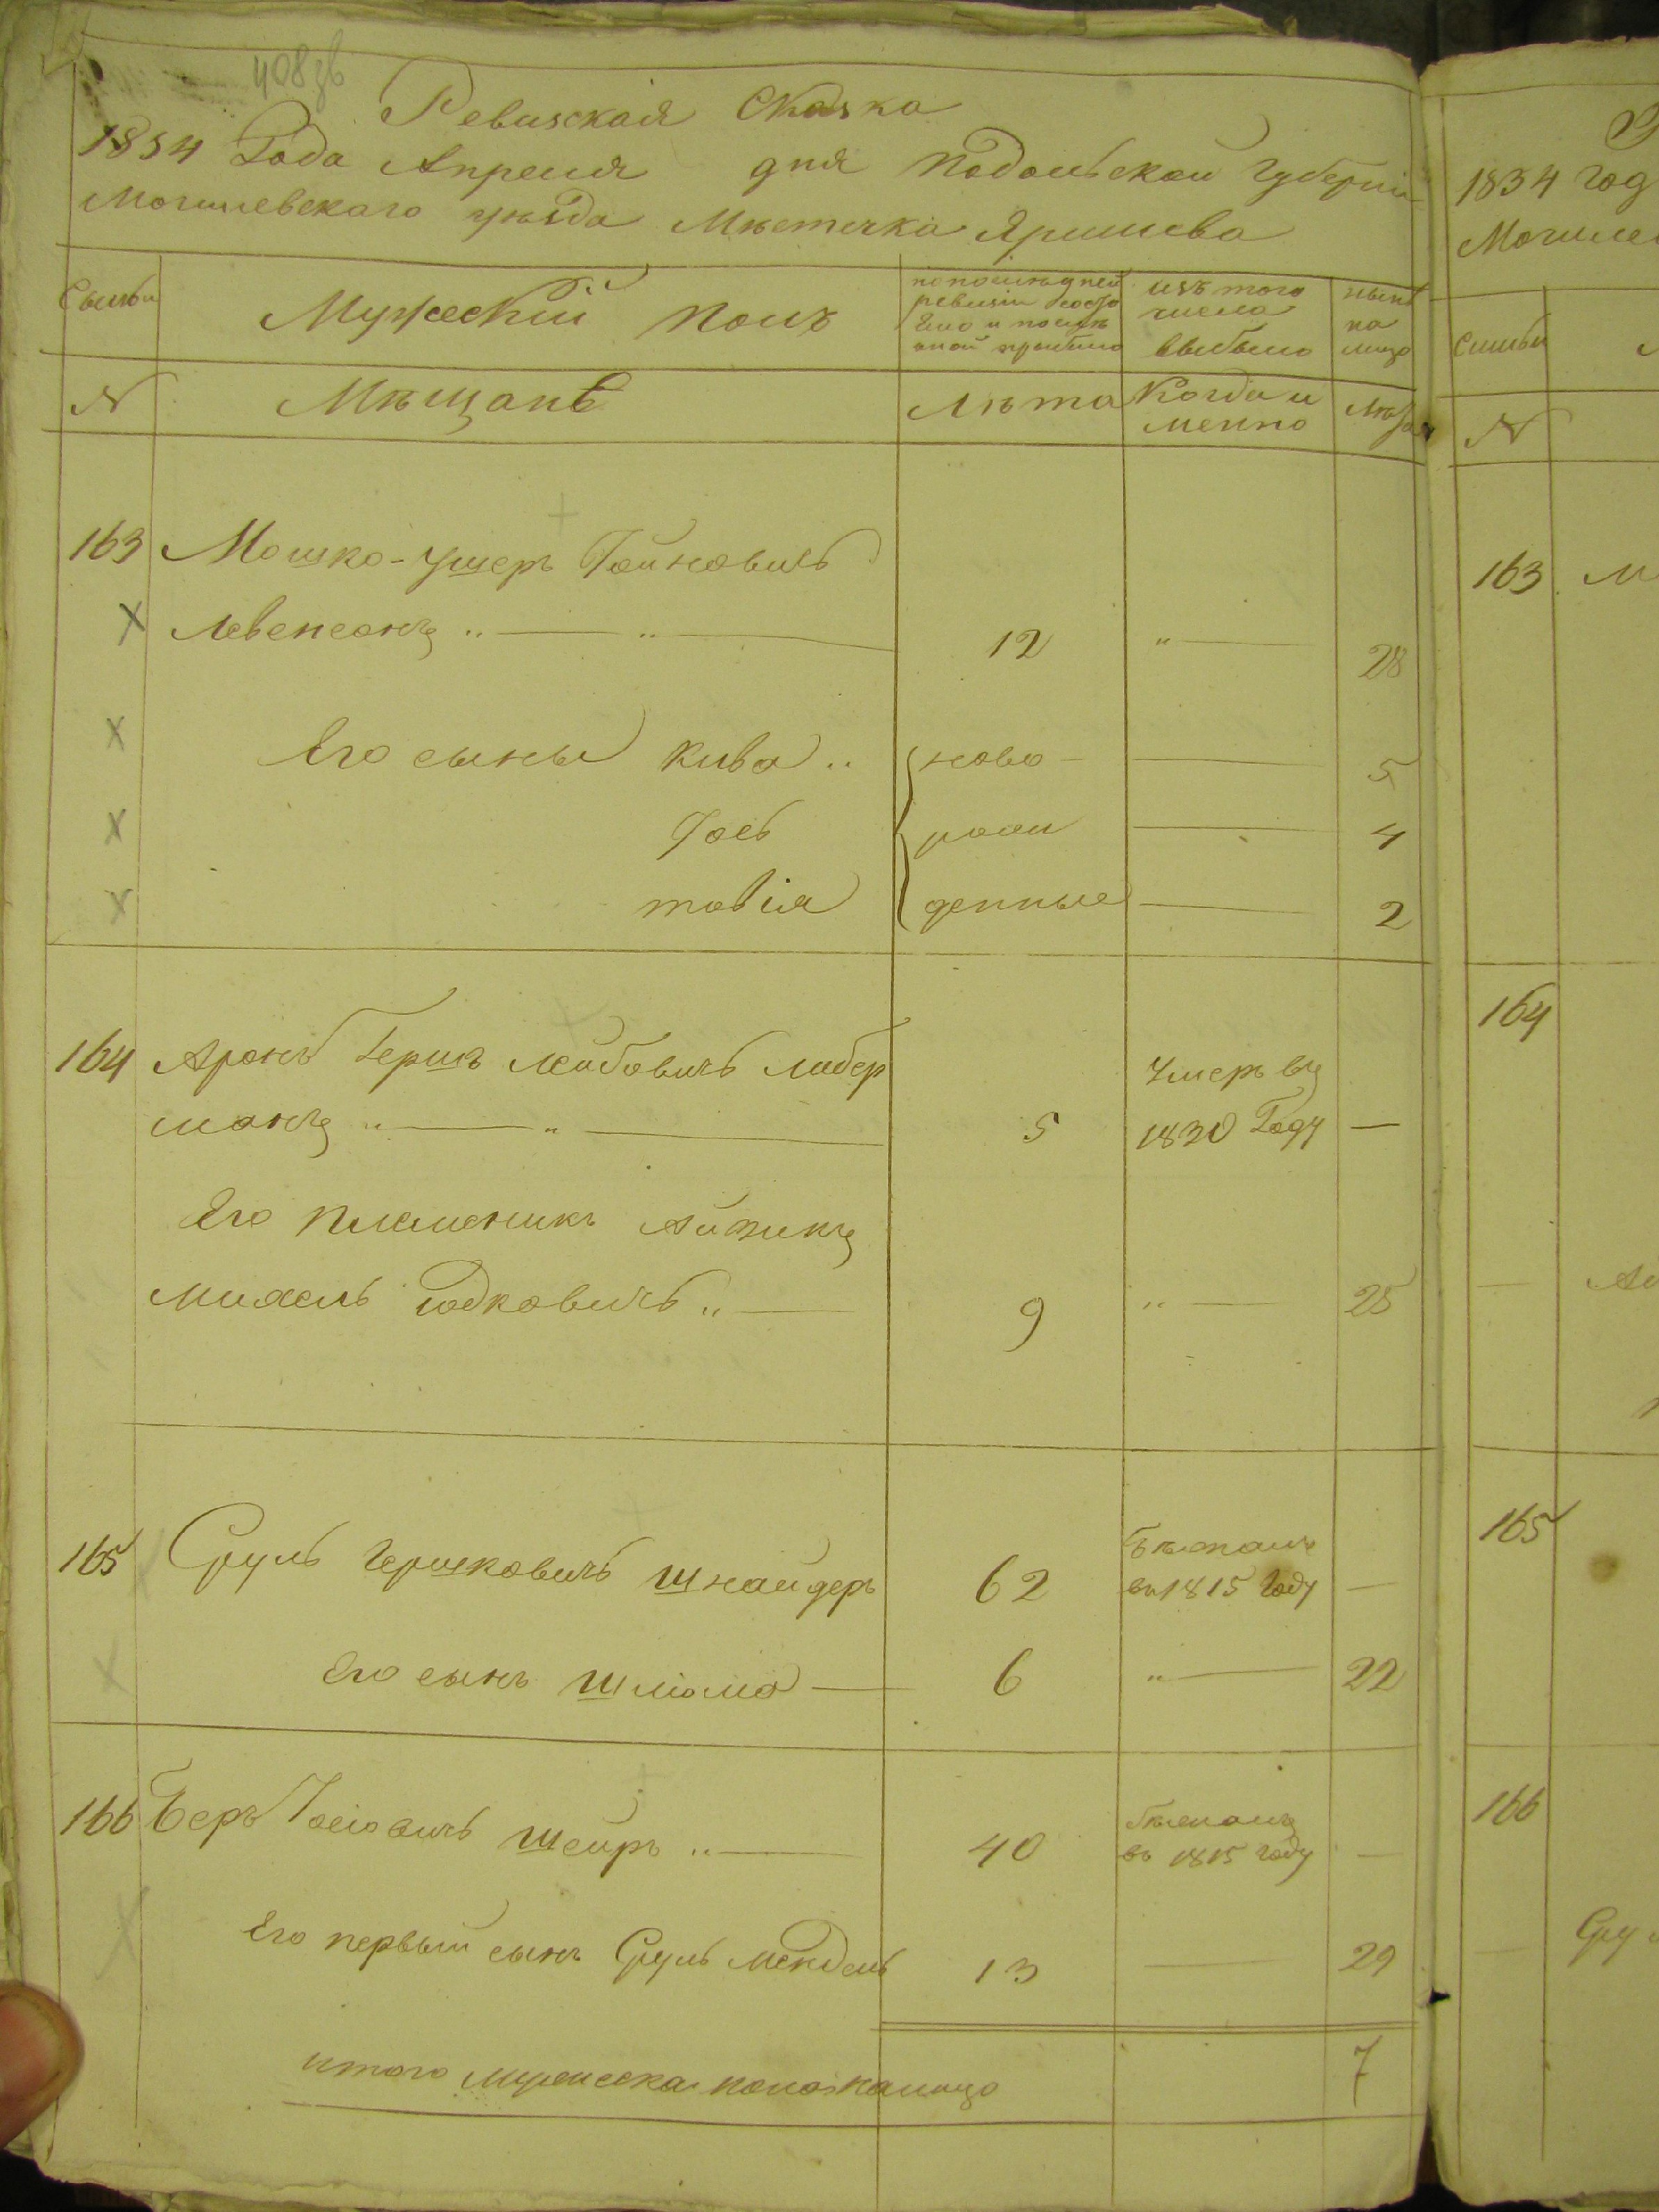 408зв
Ревизская Сказка
1834 Года Апреля дня Подольской Губерніи
Могилевскаго уѣзда Мѣстечка Яришева
Семьи
Мужескій Полъ
по послѣдней
ревизіи состо
яло и послѣ
оной прибыло
изъ того
числа
выбыло
нынѣ
на
лицо
N
Мѣщанѣ
Лѣта
Когда и
менно
Лѣта
163 Мошко-Ушеръ Іойновичъ
Левенсонъ „ — „ — 12 „ — 28
Его сыны Кива „ ново — 5
Іось рож — 4
товія денные — 2
164 Аронъ Гершъ Лейбовичъ Либер
манъ „ — „ — 5 Умеръ въ 1830 Году —
Его племеникъ Айзикъ
Михель Юдковичъ „ — 9 „ — 25
165 Сруль Гершковичъ Шнайдеръ 62 Бѣжалъ въ 1815 Году —
Его сынъ Шліома — 6 „ — 22
166 Беръ Іосіовичъ Шейръ „ — 40 Бѣжалъ въ 1815 году —
Его первый сынъ Сруль Мендель 13 — 29
итого мужеска пола на лицо 7
1834 Год
Могиле
Семьи
N
163 М
164
165
166
Сру